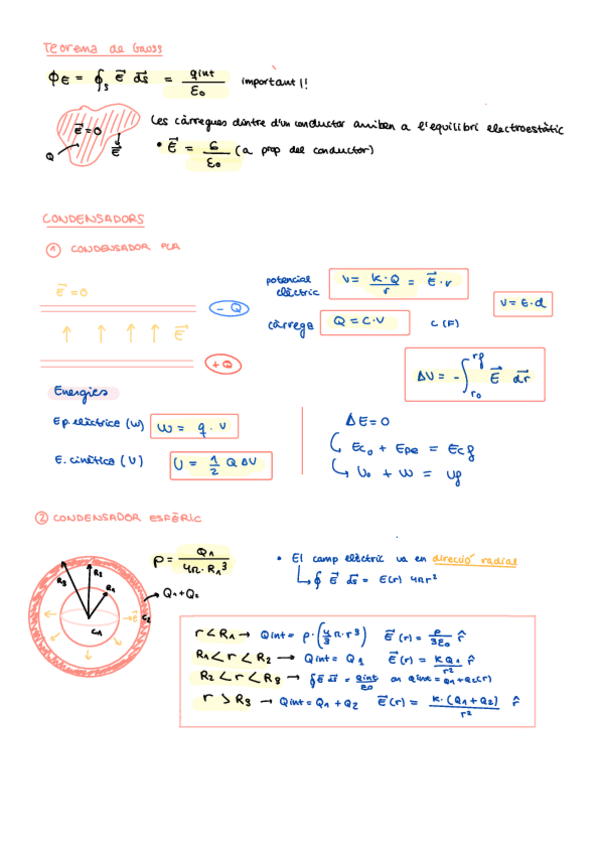 Teorema de Gauss
ΦE = ∮s E⃗ ds⃗ = qint / ε0 important!!
Les càrregues dintre d'un conductor arriben a l'equilibri electrostàtic
E⃗=0
Q
E⃗
• E⃗ = σ / ε0 (a prop del conductor)
CONDENSADORS
① CONDENSADOR PLA
E⃗=0
-Q
E⃗
+Q
potencial elèctric V = K·Q / r = E⃗·r
V = E·d
càrrega Q = C·V C (F)
ΔV = -∫r0^rf E⃗ dr⃗
Energies
Ep elèctrica (W) W = q·V
E. cinètica (U) U = 1/2 Q ΔV
ΔE=0
Ec0 + Epe = Ecf
U0 + W = Uf
② CONDENSADOR ESFÈRIC
R3
R2
R1
C1
C2
E⃗
Q1+Q2
ρ = Q1 / 4π·R1³
• El camp elèctric va en direcció radial
∮ E⃗ ds⃗ = E(r) 4πr²
r<R1 → Qint = ρ·(4/3 π·r³) E⃗(r) = ρ / 3ε0 r̂
R1<r<R2 → Qint = Q1 E⃗(r) = KQ1 / r² r̂
R2<r<R3 → ∮E⃗ ds⃗ = Qint / ε0 on Qint = Q1+Q2(r)
r>R3 → Qint = Q1 + Q2 E⃗(r) = K·(Q1+Q2) / r² r̂